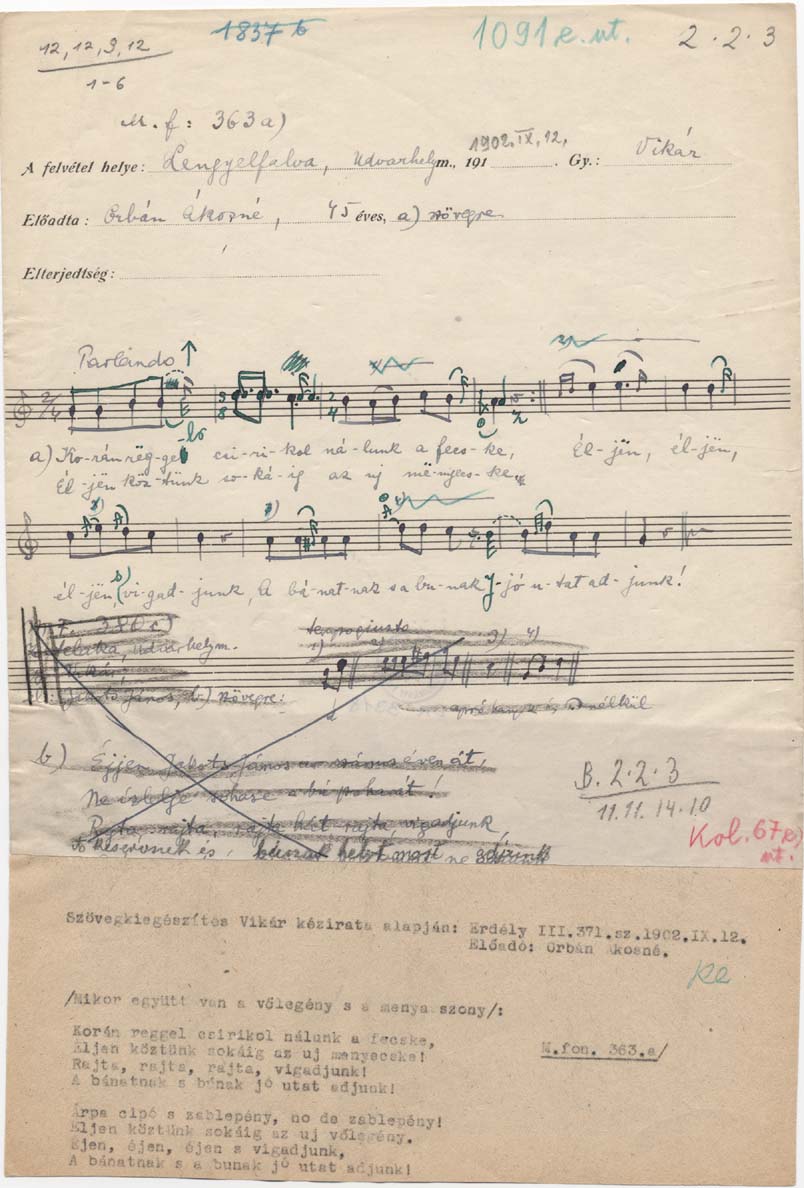 12, 12, 9, 12
1-6
1837 b
1091 e. ut.
2 . 2 . 3
M. f: 363a)
A felvétel helye: Lengyelfalva, Udvarhelym., 191 1902. IX, 12, . Gy.: Vikár
Előadta: Orbán Ákosné, 45 éves, a) szövegre
Elterjedtség:
Parlando
a) Ko-rán rëg-gel csi-ri-kol ná-lunk a fecs-ke, Él-jën, él-jën,
Él-jën köz-tünk so-ká-ig az uj më-nyecs-ke.
él-jën, vi-gad-junk, A bá-nat-nak s a bu-nak jó u-tat ad-junk!
M.f. 380 c)
Udvarhelym.
Vikár
tempo giusto
János, b.) szövegre:
nélkül
b) Éjjen Jakots János számos éven át,
Ne ízlelje sohase a bú poharát!
Rajta, rajta, rajta hát rajta, vigadjunk,
B. 2-2-3
11. 11. 14. 10
Kol. 67 e)
ut.
Szövegkiegészítés Vikár kézirata alapján: Erdély III.371.sz.1902.IX.12.
Előadó: Orbán Ákosné.
/Mikor együtt van a vőlegény s a menyasszony/:
Korán reggel csirikol nálunk a fecske,
Éljen köztünk sokáig az uj menyecske!
Rajta, rajta, rajta, vigadjunk!
A bánatnak s búnak jó utat adjunk!
M.fon. 363.a/
Árpa cipó s zablepény, no de zablepény!
Éljen köztünk sokáig az uj vőlegény.
Éjen, éjen, éjen s vigadjunk,
A bánatnak s a bunak jó utat adjunk!